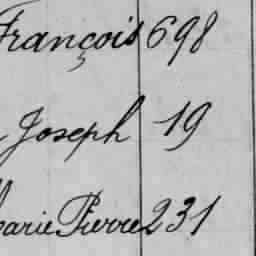 François 698
Joseph 19
Marie Pierre 231